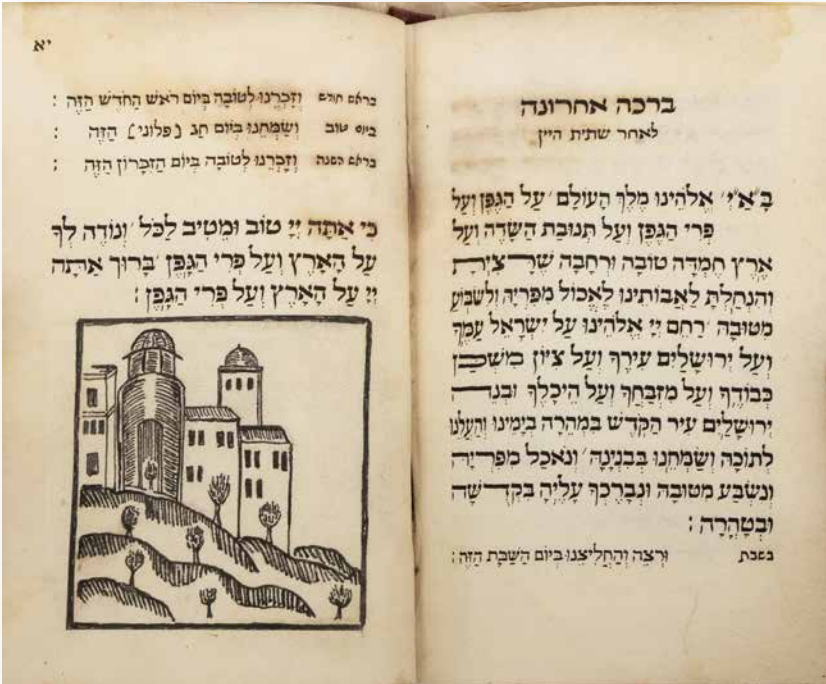 ברכה אחרונה
לאחר שתית היין
בָּ"אַ"יְ׳ אֱלֹהֵינוּ מֶלֶךְ הָעוֹלָם ׳ עַל הַגֶּפֶן וְעַל
פְּרִי הַגֶּפֶן וְעַל תְּנוּבַת הַשָּׂדֶה וְעַל
אֶרֶץ חֶמְדָּה טוֹבָה וּרְחָבָה שֶׁרָצִיתָ
וְהִנְחַלְתָּ לַאֲבוֹתֵינוּ לֶאֱכוֹל מִפִּרְיָהּ וְלִשְׂבּוֹעַ
מִטּוּבָהּ ׳ רַחֵם יְיָ אֱלֹהֵינוּ עַל יִשְׂרָאֵל עַמֶּךָ
וְעַל יְרוּשָׁלַיִם עִירֶךָ וְעַל צִיּוֹן מִשְׁכַּן
כְּבוֹדֶךָ וְעַל מִזְבַּחֲךָ וְעַל הֵיכָלֶךָ וּבְנֵה
יְרוּשָׁלַיִם עִיר הַקֹּדֶשׁ בִּמְהֵרָה בְיָמֵינוּ וְהַעֲלֵנוּ
לְתוֹכָהּ וְשַׂמְּחֵנוּ בְּבִנְיָנָהּ ׳ וְנֹאכַל מִפִּרְיָהּ
וְנִשְׂבַּע מִטּוּבָהּ וּנְבָרֶכְךָ עָלֶיהָ בִּקְדֻשָּׁה
וּבְטָהֳרָה :
בשבת וּרְצֵה וְהַחֲלִיצֵנוּ בְּיוֹם הַשַּׁבָּת הַזֶּה :
יא
בראש חודש וְזָכְרֵנוּ לְטוֹבָה בְּיוֹם רֹאשׁ הַחֹדֶשׁ הַזֶּה :
ביום טוב וְשַׂמְּחֵנוּ בְּיוֹם חַג (פְּלוֹנִי) הַזֶּה :
בראש השנה וְזָכְרֵנוּ לְטוֹבָה בְּיוֹם הַזִּכָּרוֹן הַזֶּה :
כִּי אַתָּה יְיָ טוֹב וּמֵטִיב לַכֹּל ׳ וְנוֹדֶה לְךָ
עַל הָאָרֶץ וְעַל פְּרִי הַגָּפֶן ׳ בָּרוּךְ אַתָּה
יְיָ עַל הָאָרֶץ וְעַל פְּרִי הַגָּפֶן :